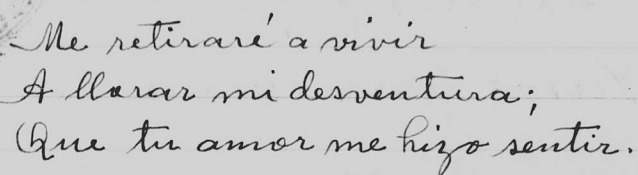 Me retiraré a vivir
A llorar mi desventura;
Que tu amor me hizo sentir.